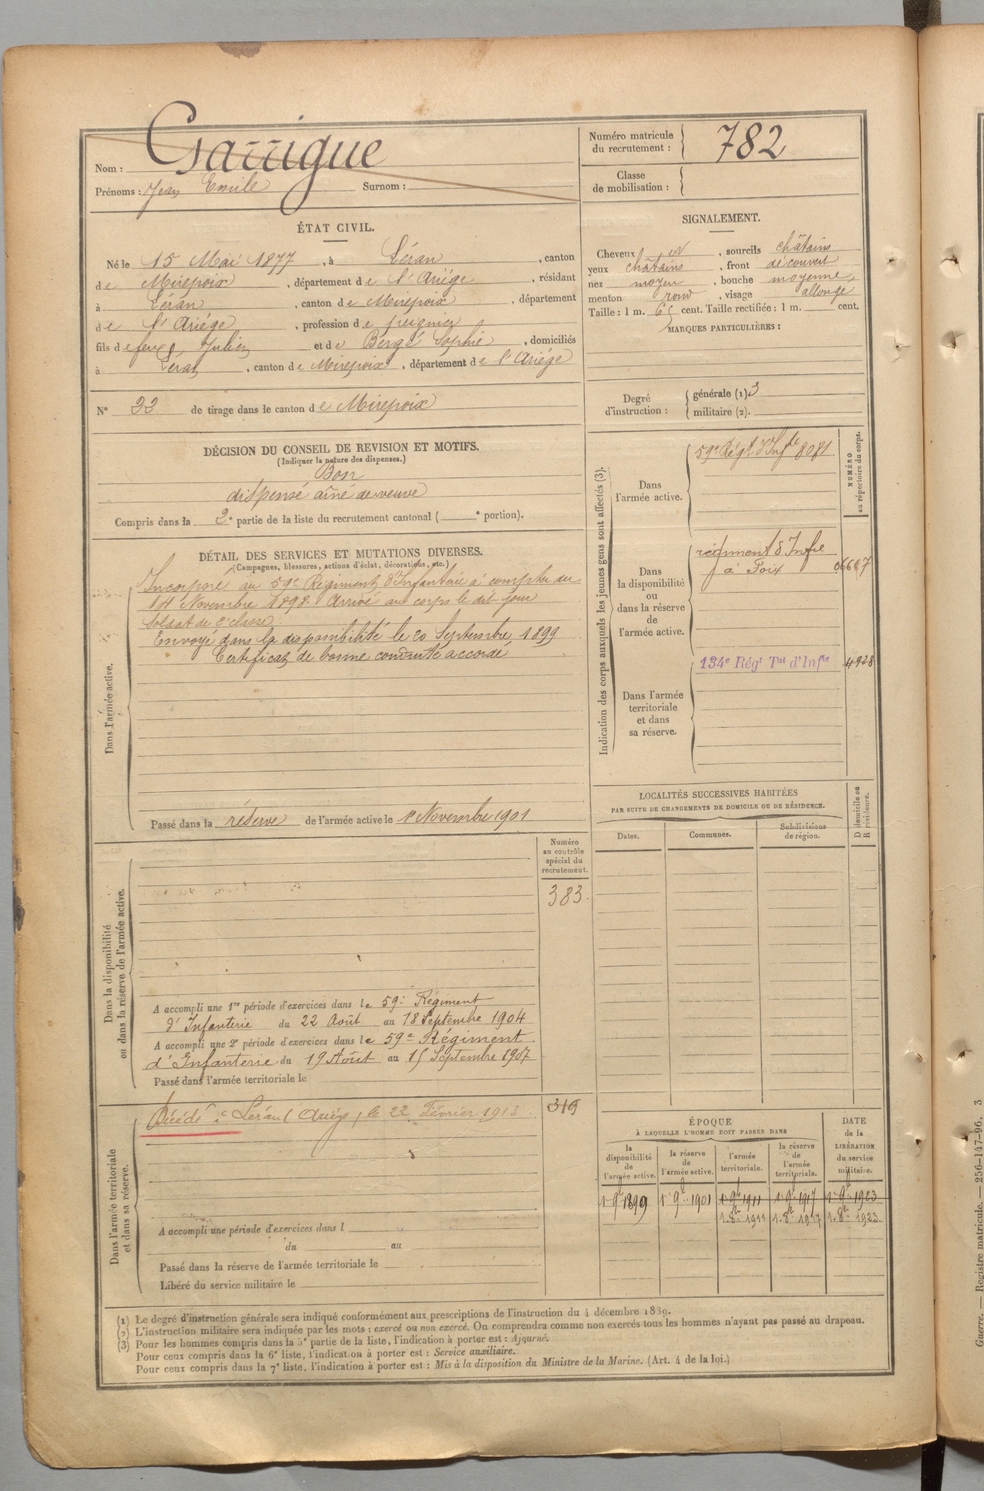 Nom : Garrigue
Prénoms : Jean Emile Surnom :
Numéro matricule du recrutement : 782
Classe de mobilisation :
ÉTAT CIVIL.
Né le 15 Mai 1877, à Léran, canton
de Mirepoix, département de l'Ariége, résidant
à Léran, canton de Mirepoix, département
de l'Ariége, profession de peignier
fils de feu Julien et de Bergé Sophie, domiciliés
à Léran, canton de Mirepoix, département de l'Ariége
N° 33 de tirage dans le canton de Mirepoix
SIGNALEMENT.
Cheveux, sourcils châtains
yeux châtains, front découvert
nez moyen, bouche moyenne
menton rond, visage allongé
Taille : 1 m. 65 cent. Taille rectifiée : 1 m. cent.
MARQUES PARTICULIÈRES :
Degré d'instruction : générale (1) 3
militaire (2).
DÉCISION DU CONSEIL DE REVISION ET MOTIFS.
(Indiquer la nature des dispenses.)
Bon
dispensé aîné de veuve
Compris dans la 2e partie de la liste du recrutement cantonal ( e portion).
DÉTAIL DES SERVICES ET MUTATIONS DIVERSES.
(Campagnes, blessures, actions d'éclat, décorations, etc.)
Dans l'armée active.
Incorporé au 59e Régiment d'Infanterie à compter du
14 Novembre 1898 Arrivé au corps le dit jour
soldat de 2e classe
Envoyé dans la disponibilité le 20 Septembre 1899
Certificat de bonne conduite accordé
Passé dans la réserve de l'armée active le 1er Novembre 1901
Indication des corps auxquels les jeunes gens sont affectés (3).
NUMÉRO au répertoire du corps.
Dans l'armée active.
59e Régt d'Infie 8081
Dans la disponibilité ou dans la réserve de l'armée active.
régiment d'Infie
à Foix 06667
Dans l'armée territoriale et dans sa réserve.
134e Régt Tal d'Infie 4928
LOCALITÉS SUCCESSIVES HABITÉES
PAR SUITE DE CHANGEMENTS DE DOMICILE OU DE RÉSIDENCE.
Dates. Communes. Subdivisions de région. Domicile ou Résidence.
Dans la disponibilité ou dans la réserve de l'armée active.
Numéro au contrôle spécial du recrutement.
383
A accompli une 1re période d'exercices dans le 59e Régiment
d'Infanterie du 22 Août au 18 Septembre 1904
A accompli une 2e période d'exercices dans le 59e Régiment
d'Infanterie du 19 Août au 15 Septembre 1907
Passé dans l'armée territoriale le
Dans l'armée territoriale et dans sa réserve.
Décédé à Léran (Ariège) le 22 Février 1913
319
A accompli une période d'exercices dans l
du au
Passé dans la réserve de l'armée territoriale le
Libéré du service militaire le
ÉPOQUE
À LAQUELLE L'HOMME DOIT PASSER DANS
DATE de la LIBÉRATION du service militaire.
la disponibilité de l'armée active. la réserve de l'armée active. l'armée territoriale. la réserve de l'armée territoriale.
1er 9bre 1899 1er 9bre 1901 1er 9bre 1911 1er 9bre 1917 1er 9bre 1923
1er 8bre 1911 1er 8bre 1917 1er 8bre 1923
(1) Le degré d'instruction générale sera indiqué conformément aux prescriptions de l'instruction du 4 décembre 1889.
(2) L'instruction militaire sera indiquée par les mots : exercé ou non exercé. On comprendra comme non exercés tous les hommes n'ayant pas passé au drapeau.
(3) Pour les hommes compris dans la 5e partie de la liste, l'indication à porter est : Ajourné.
Pour ceux compris dans la 6e liste, l'indication à porter est : Service auxiliaire.
Pour ceux compris dans la 7e liste, l'indication à porter est : Mis à la disposition du Ministre de la Marine. (Art. 4 de la loi.)
Guerre. — Registre matricule. — 256-147-96. 3